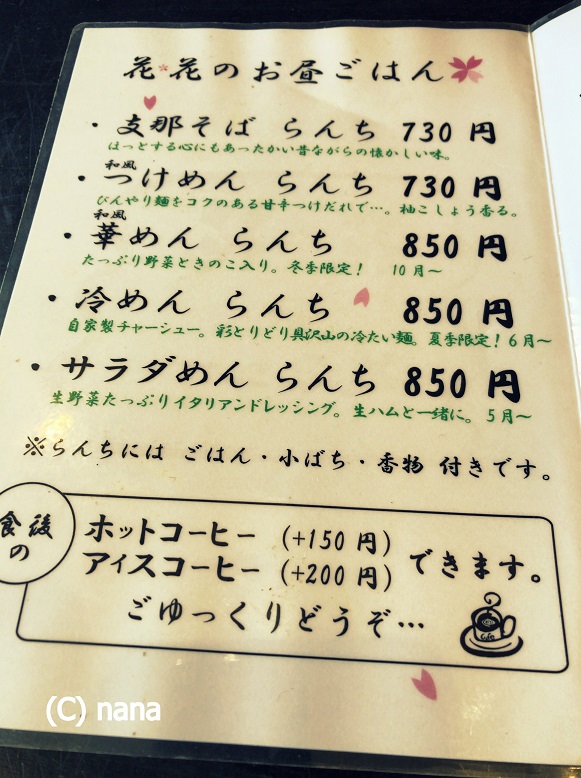 花*花のお昼ごはん
・支那そば らんち 730円
ほっとする心にもあったかい昔ながらの懐かしい味。
和風
・つけめん らんち 730円
ひんやり麺をコクのある甘辛つけだれで…。柚こしょう香る。
和風
・華めん らんち 850円
たっぷり野菜ときのこ入り。冬季限定! 10月〜
・冷めん らんち 850円
自家製チャーシュー。彩とりどり具沢山の冷たい麺。夏季限定!6月〜
・サラダめん らんち 850円
生野菜たっぷりイタリアンドレッシング。生ハムと一緒に。5月〜
※らんちには ごはん・小ばち・香物 付きです。
食後の
ホットコーヒー (+150円)
アイスコーヒー (+200円)
できます。
ごゆっくりどうぞ…
(C) nana